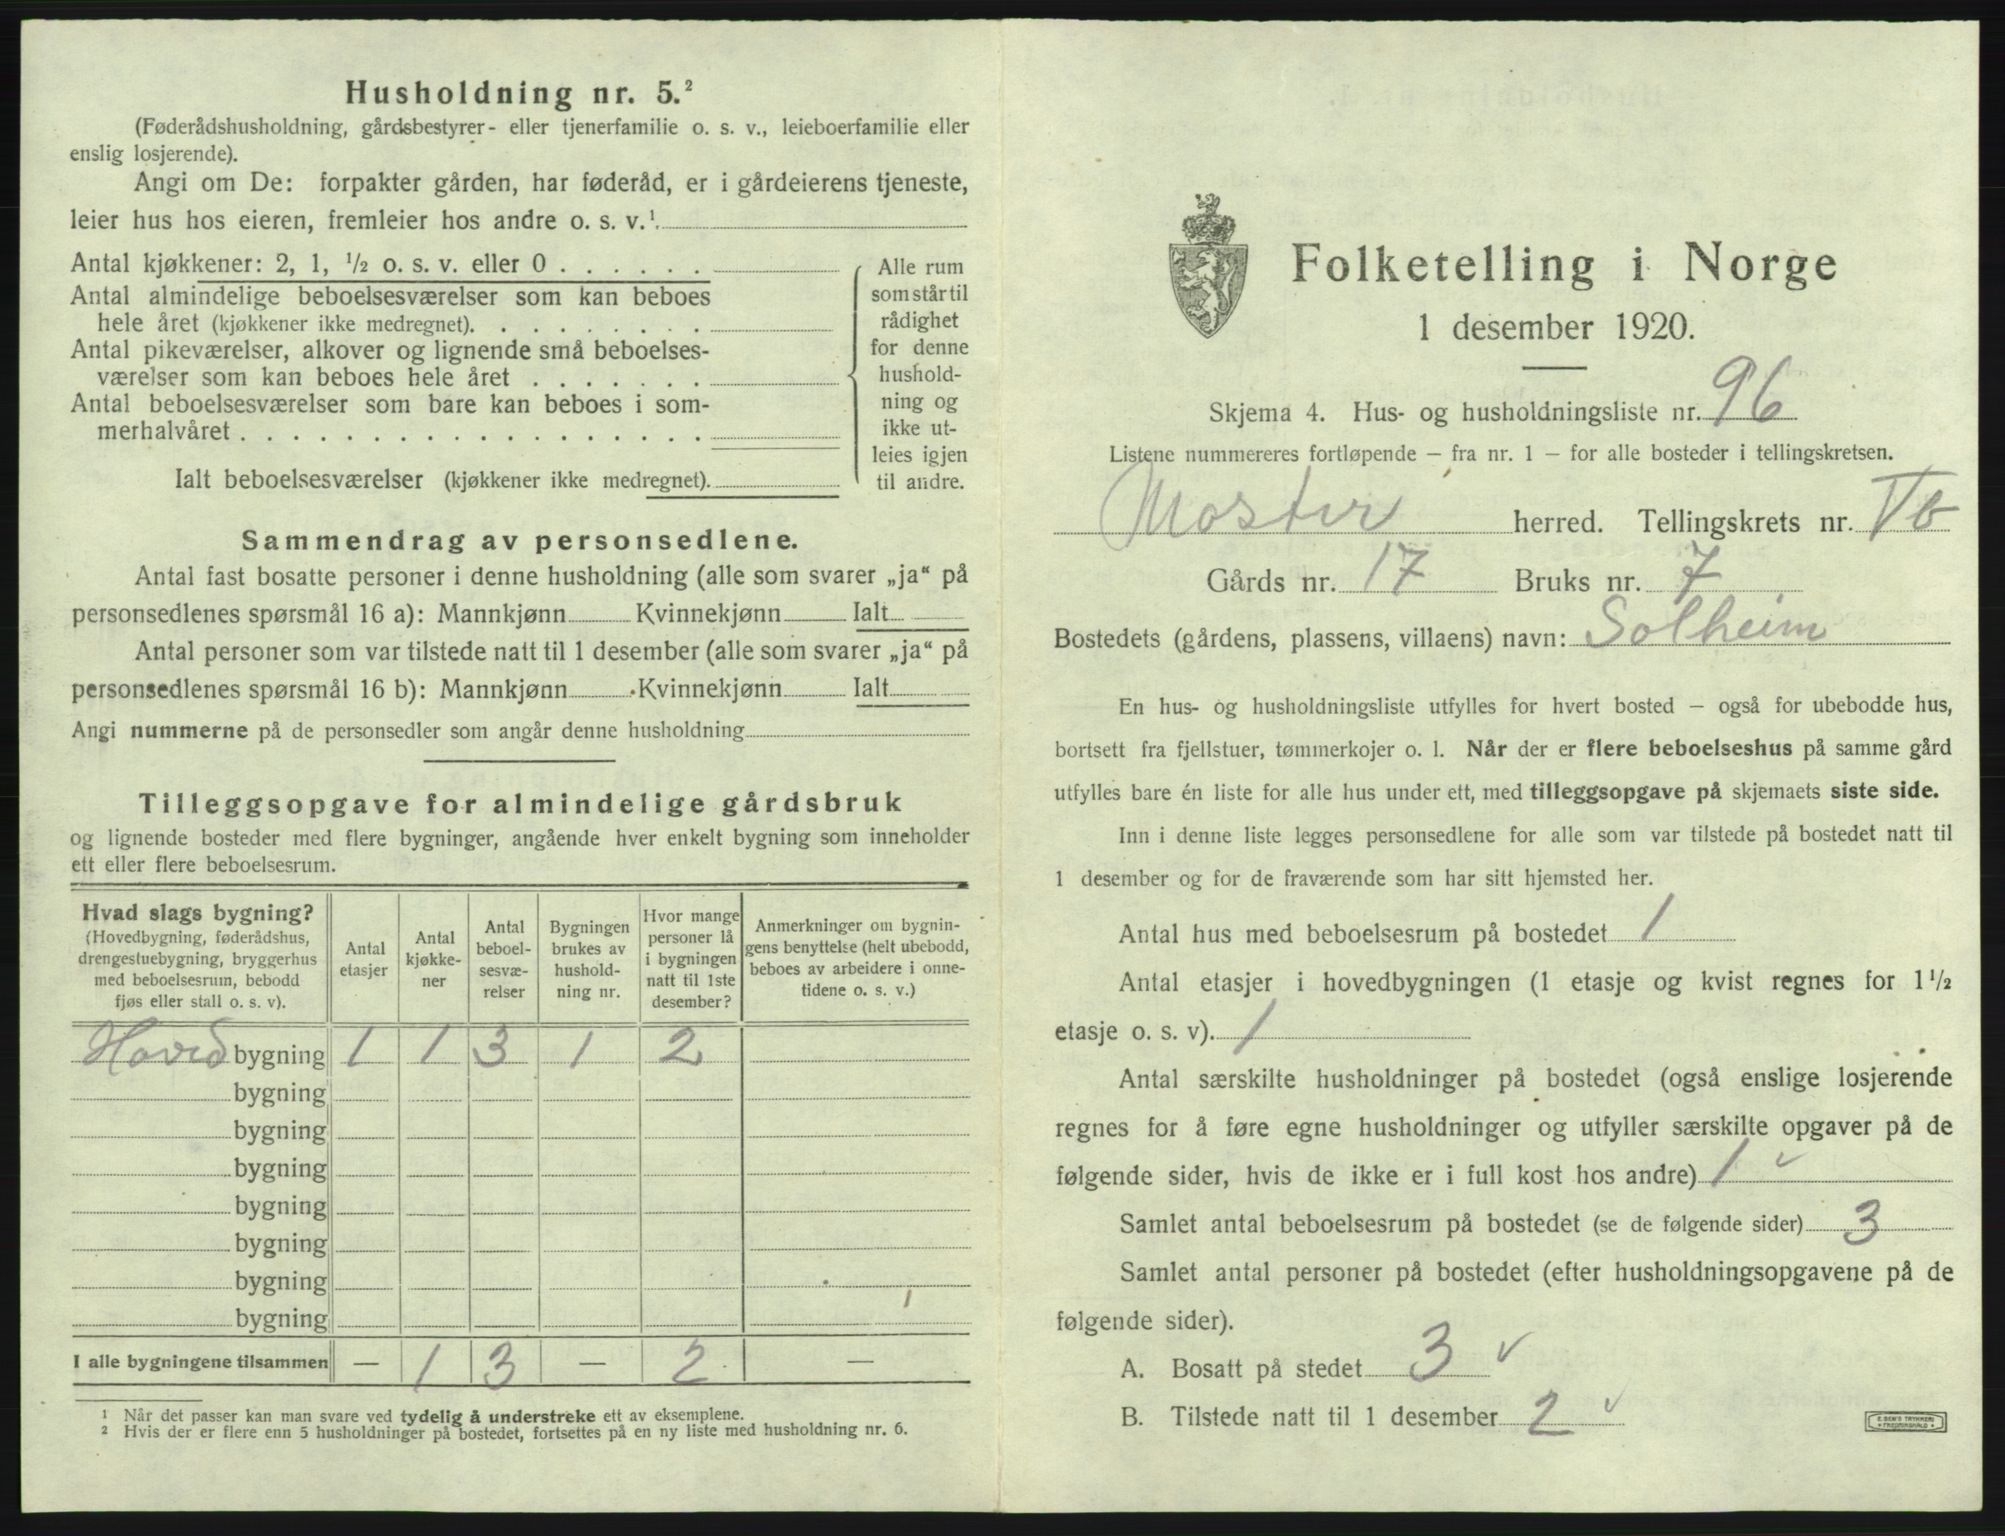 Husholdning nr. 5.²
(Føderådshusholdning, gårdsbestyrer- eller tjenerfamilie o. s. v., leieboerfamilie eller
enslig losjerende).
Angi om De: forpakter gården, har føderåd, er i gårdeierens tjeneste,
leier hus hos eieren, fremleier hos andre o. s. v.¹
Antal kjøkkener: 2, 1, ½ o. s. v. eller 0 . . . . . .
Antal almindelige beboelsesværelser som kan beboes
hele året (kjøkkener ikke medregnet). . . . . . . . .
Antal pikeværelser, alkover og lignende små beboelses-
værelser som kan beboes hele året . . . . . . .
Antal beboelsesværelser som bare kan beboes i som-
merhalvåret . . . . . . . . . . . . . . . . . .
Ialt beboelsesværelser (kjøkkener ikke medregnet).
Alle rum
som står til
rådighet
for denne
hushold-
ning og
ikke ut-
leies igjen
til andre.
Sammendrag av personsedlene.
Antal fast bosatte personer i denne husholdning (alle som svarer „ja“ på
personsedlenes spørsmål 16 a): Mannkjønn Kvinnekjønn Ialt
Antal personer som var tilstede natt til 1 desember (alle som svarer „ja“ på
personsedlenes spørsmål 16 b): Mannkjønn Kvinnekjønn Ialt
Angi nummerne på de personsedler som angår denne husholdning
Tilleggsopgave for almindelige gårdsbruk
og lignende bosteder med flere bygninger, angående hver enkelt bygning som inneholder
ett eller flere beboelsesrum.
Hvad slags bygning?
(Hovedbygning, føderådshus,
drengestuebygning, bryggerhus
med beboelsesrum, bebodd
fjøs eller stall o. s. v).
Antal
etasjer
Antal
kjøkke-
ner
Antal
beboel-
sesvæ-
relser
Bygningen
brukes av
hushold-
ning nr.
Hvor mange
personer lå
i bygningen
natt til 1ste
desember?
Anmerkninger om bygnin-
gens benyttelse (helt ubebodd,
beboes av arbeidere i onne-
tidene o. s. v.)
Hoved bygning 1 1 3 1 2
bygning
bygning
bygning
bygning
bygning
bygning
bygning
I alle bygningene tilsammen — 1 3 — 2 —
¹ Når det passer kan man svare ved tydelig å understreke ett av eksemplene.
² Hvis der er flere enn 5 husholdninger på bostedet, fortsettes på en ny liste med husholdning nr. 6.
Folketelling i Norge
1 desember 1920.
Skjema 4. Hus- og husholdningsliste nr. 96
Listene nummereres fortløpende — fra nr. 1 — for alle bosteder i tellingskretsen.
Moster herred. Tellingskrets nr. Vb
Gårds nr. 17 Bruks nr. 7
Bostedets (gårdens, plassens, villaens) navn: Solheim
En hus- og husholdningsliste utfylles for hvert bosted — også for ubebodde hus,
bortsett fra fjellstuer, tømmerkojer o. l. Når der er flere beboelseshus på samme gård
utfylles bare én liste for alle hus under ett, med tilleggsopgave på skjemaets siste side.
Inn i denne liste legges personsedlene for alle som var tilstede på bostedet natt til
1 desember og for de fraværende som har sitt hjemsted her.
Antal hus med beboelsesrum på bostedet 1
Antal etasjer i hovedbygningen (1 etasje og kvist regnes for 1½
etasje o. s. v). 1
Antal særskilte husholdninger på bostedet (også enslige losjerende
regnes for å føre egne husholdninger og utfyller særskilte opgaver på de
følgende sider, hvis de ikke er i full kost hos andre) 1 ✓
Samlet antal beboelsesrum på bostedet (se de følgende sider) 3
Samlet antal personer på bostedet (efter husholdningsopgavene på de
følgende sider).
A. Bosatt på stedet 3 ✓
B. Tilstede natt til 1 desember 2 ✓